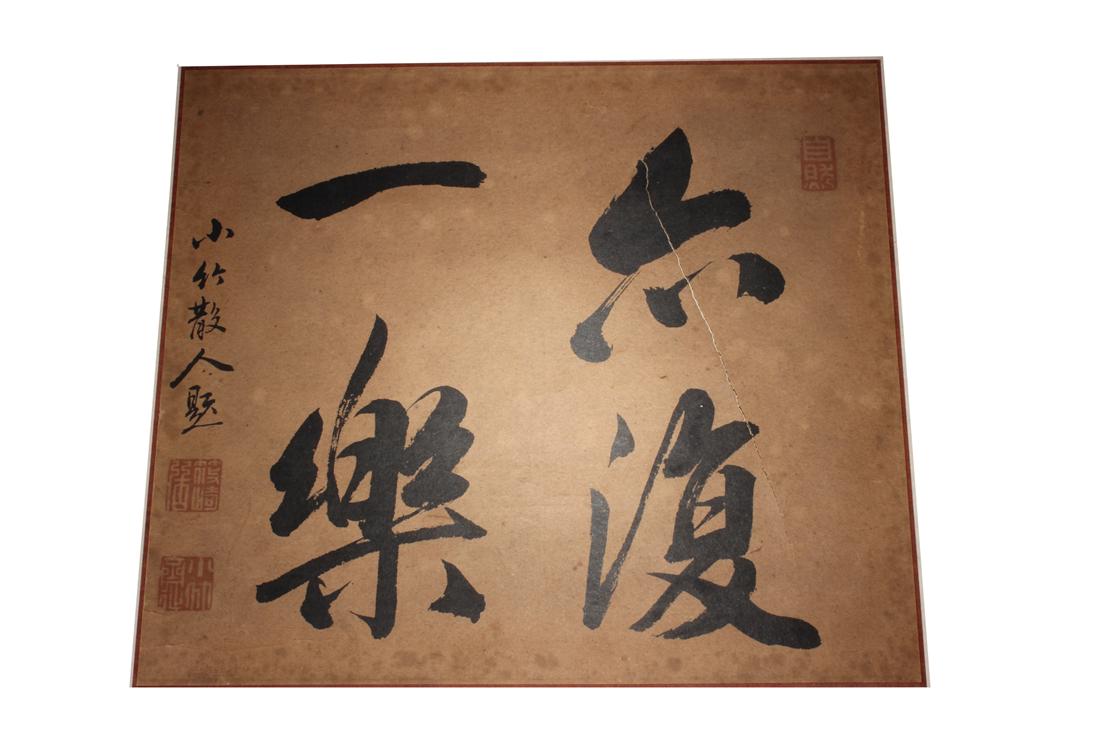 亦復
一樂
小竹散人題